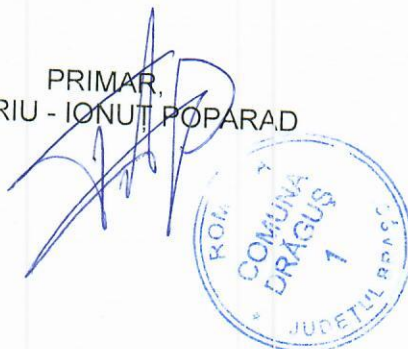 PRIMAR,
RIU - IONUȚ POPARAD
ROM
COMUNA
DRĂGUȘ
1
JUDEȚUL BRAȘOV